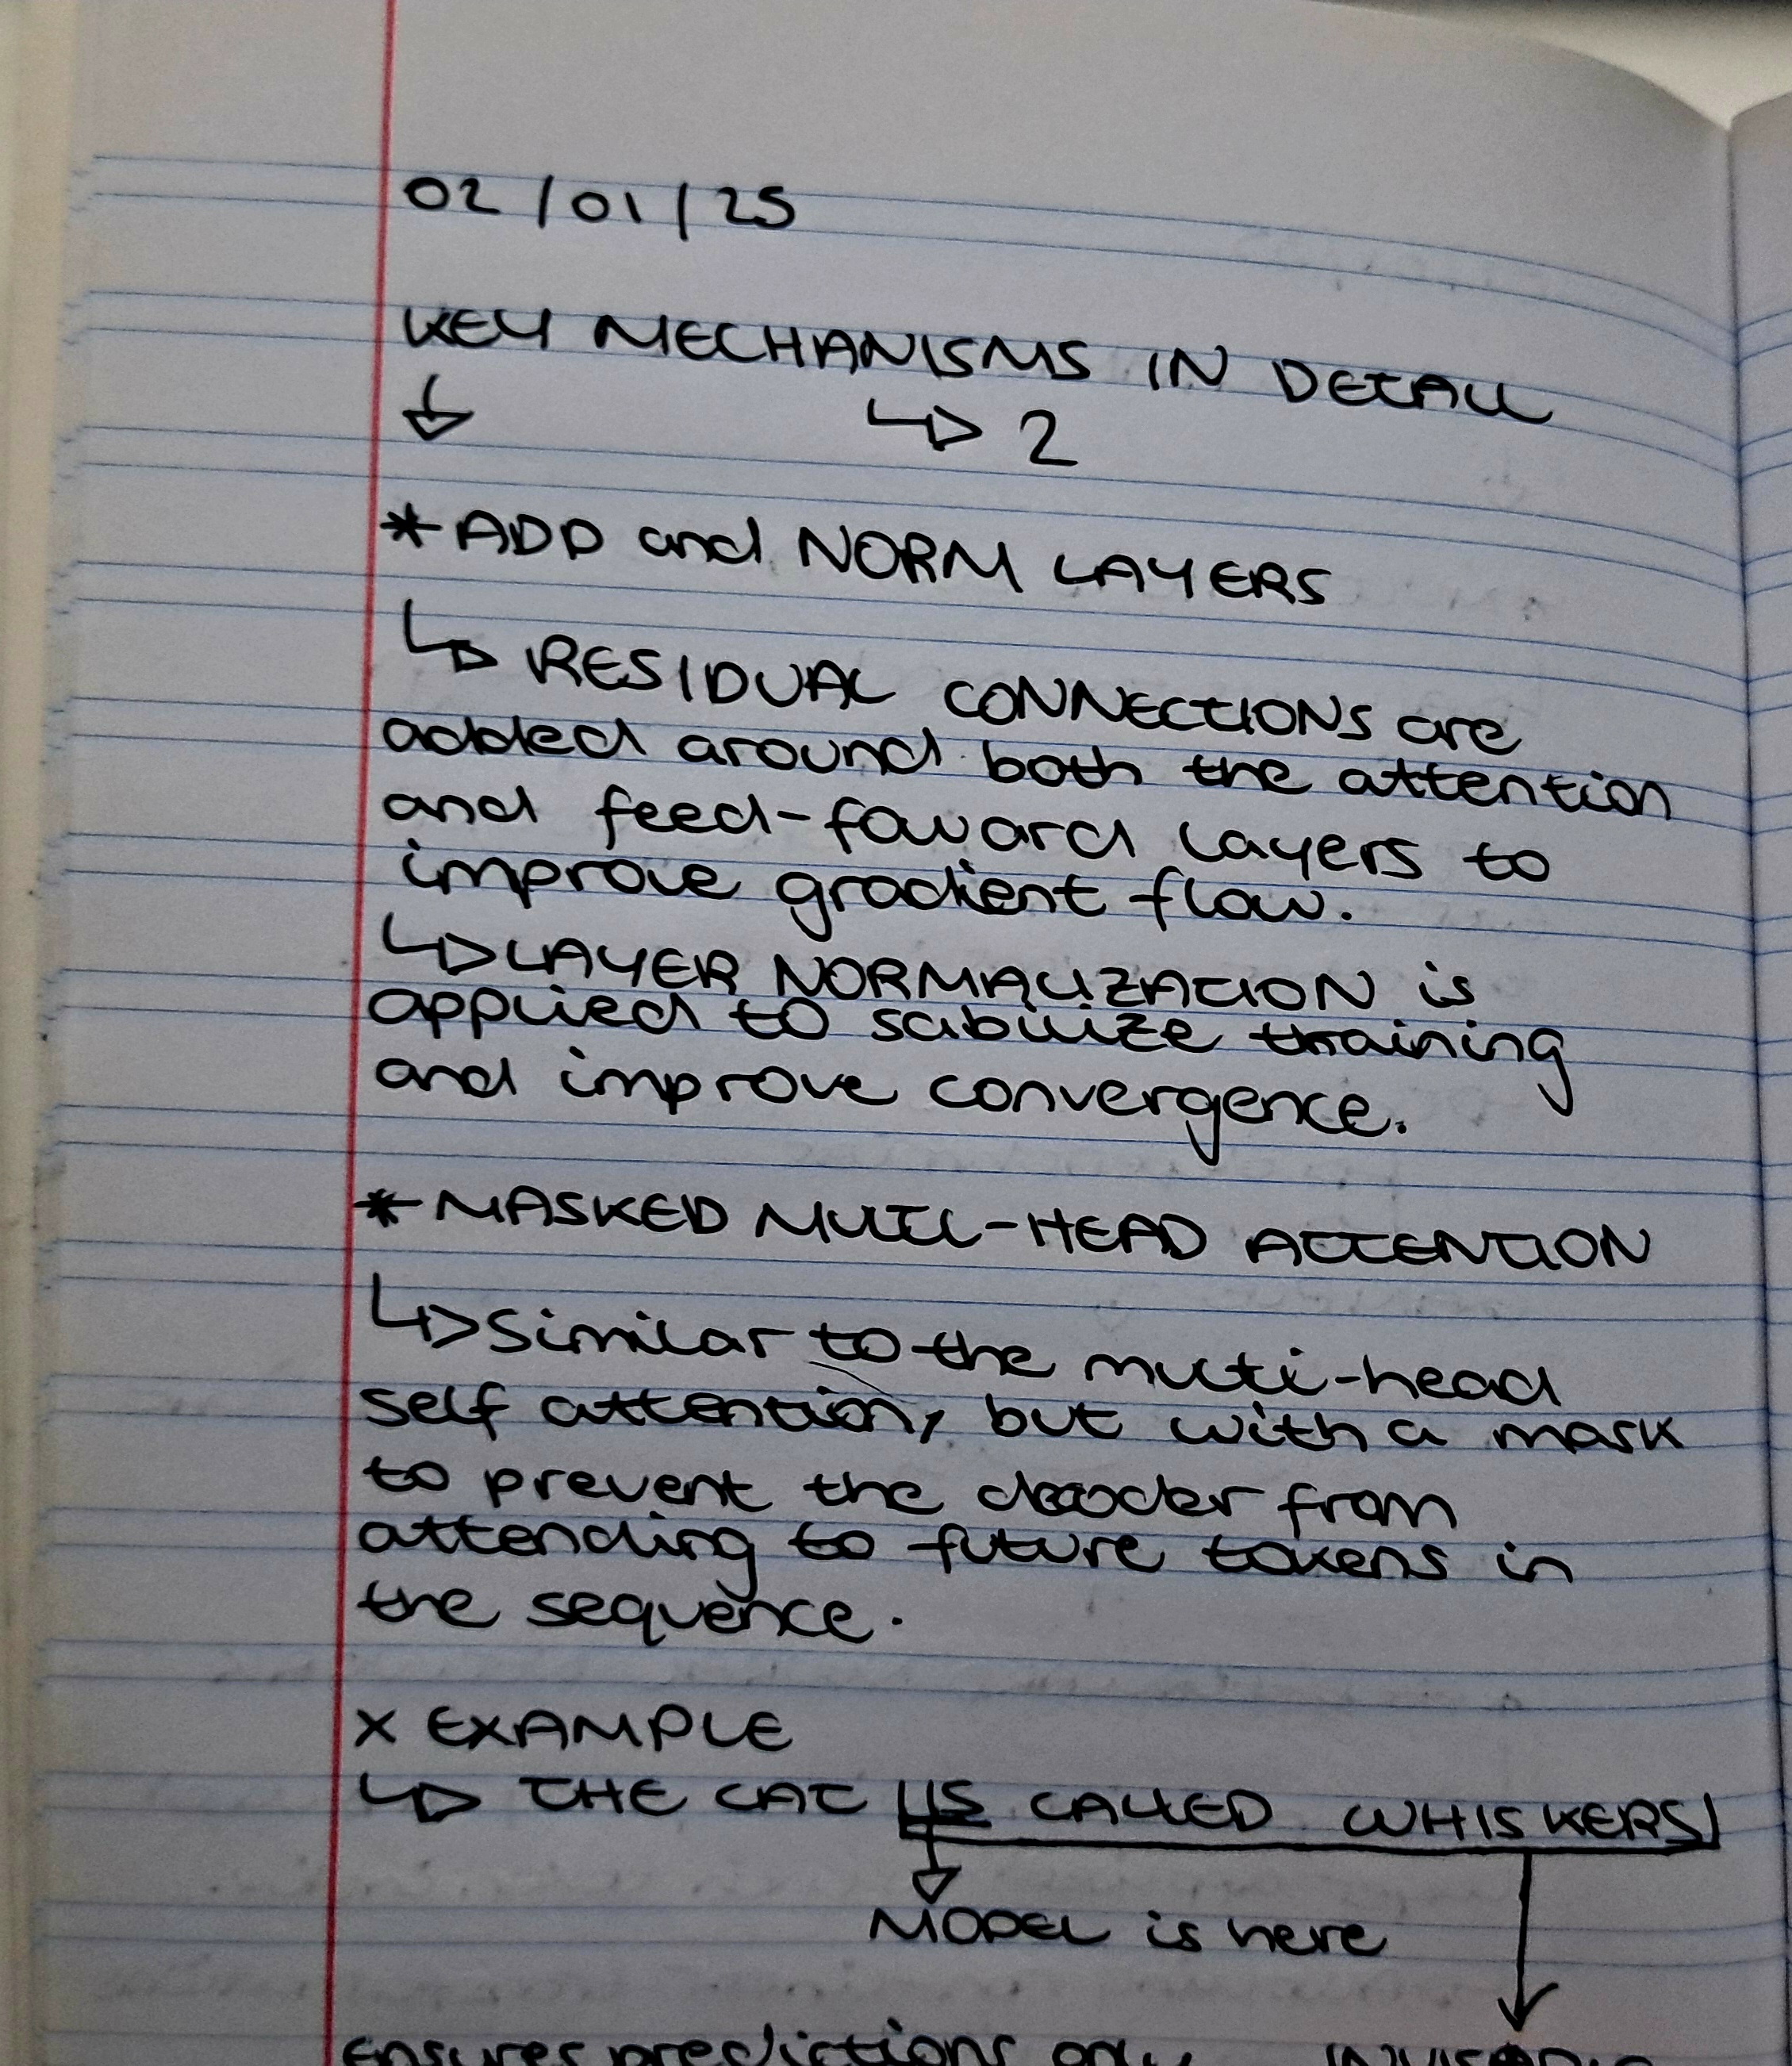 02/01/25
KEY MECHANISMS IN DETAIL
↳ 2
* ADD and NORM LAYERS
↳ RESIDUAL CONNECTIONS are
added around both the attention
and feed-foward layers to
improve gradient flow.
↳ LAYER NORMALIZATION is
applied to sabilize training
and improve convergence.
* MASKED MULTI-HEAD ATTENTION
↳ Similar to the multi-head
self attention, but with a mask
to prevent the decoder from
attending to future tokens in
the sequence.
x EXAMPLE
↳ THE CAT IS CALLED WHISKERS
MODEL is here
Ensures predictions only